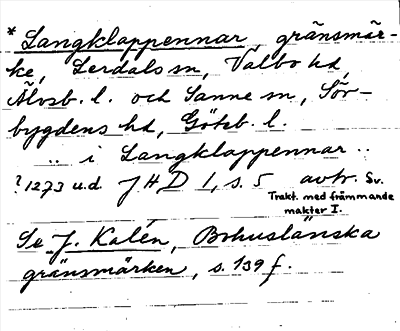 * Langklappennar, gränsmär-
ke, Lerdals sn, Valbo hd,
Älvsb. l. och Sanne sn, Sör-
bygdens hd, Göteb. l.
.. i Langklappennar ..
? 1273 u.d JHD 1, s. 5 avtr. Sv.
Trakt. med främmande
makter I.
Se J. Kalén, Bohuslänska
gränsmärken, s. 139 f.